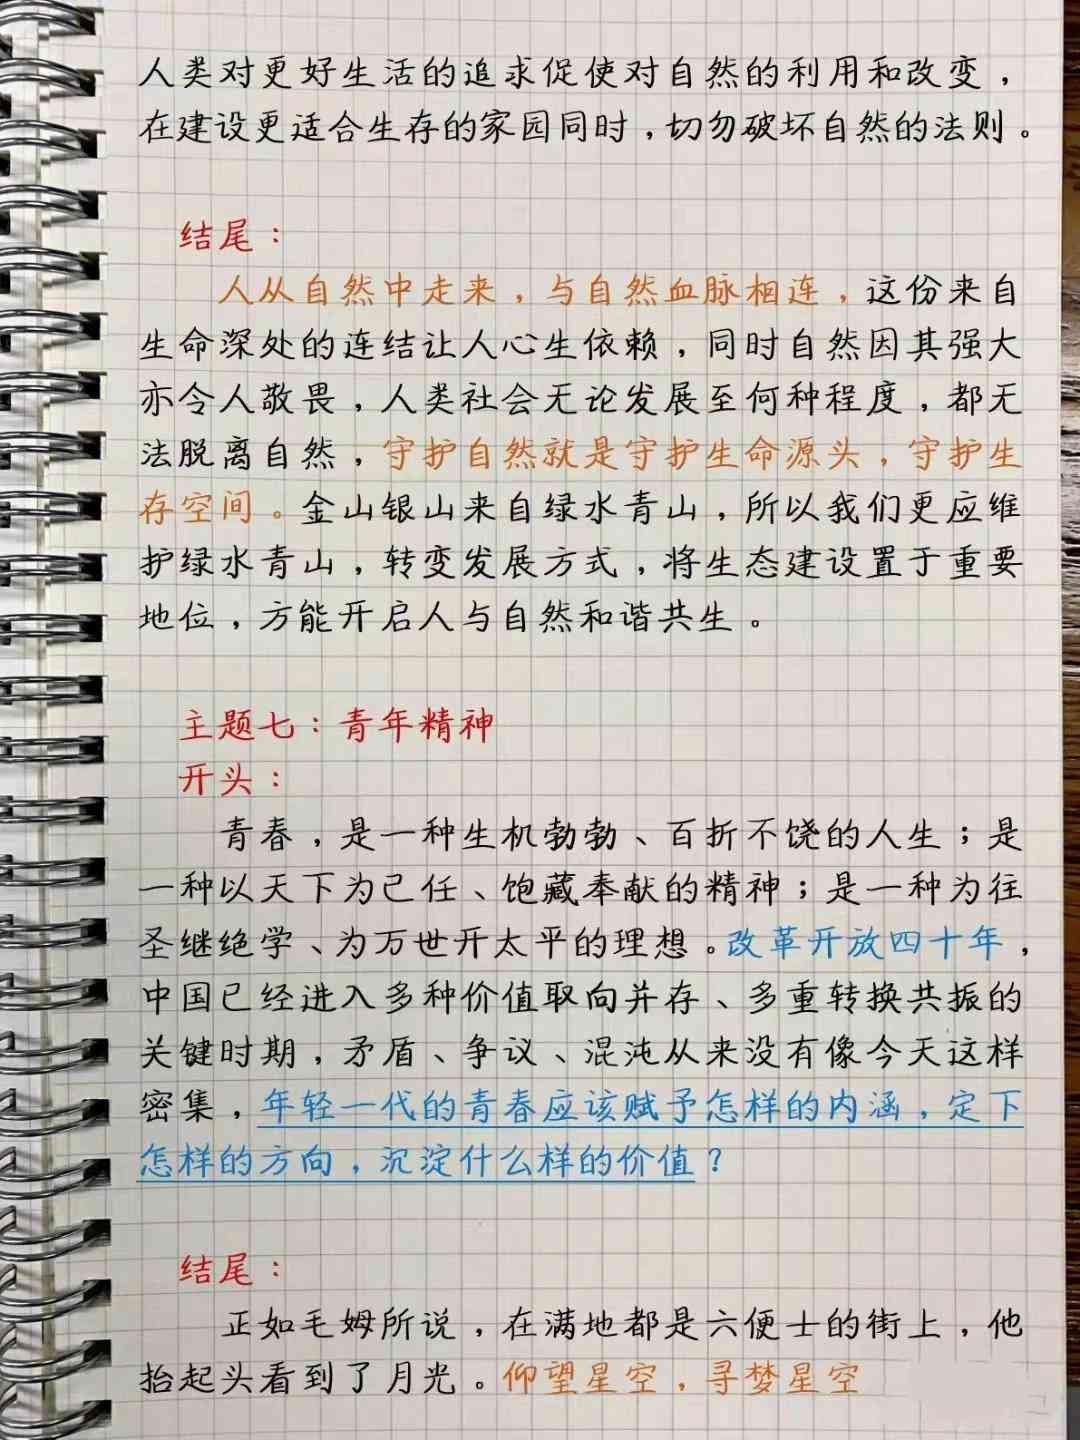 人类对更好生活的追求促使对自然的利用和改变，
在建设更适合生存的家园同时，切勿破坏自然的法则。
结尾：
人从自然中走来，与自然血脉相连，这份来自
生命深处的连结让人心生依赖，同时自然因其强大
亦令人敬畏，人类社会无论发展至何种程度，都无
法脱离自然，守护自然就是守护生命源头，守护生
存空间。金山银山来自绿水青山，所以我们更应维
护绿水青山，转变发展方式，将生态建设置于重要
地位，方能开启人与自然和谐共生。
主题七：青年精神
开头：
青春，是一种生机勃勃、百折不饶的人生；是
一种以天下为己任、饱藏奉献的精神；是一种为往
圣继绝学、为万世开太平的理想。改革开放四十年，
中国已经进入多种价值取向并存、多重转换共振的
关键时期，矛盾、争议、混沌从来没有像今天这样
密集，年轻一代的青春应该赋予怎样的内涵，定下
怎样的方向，沉淀什么样的价值？
结尾：
正如毛姆所说，在满地都是六便士的街上，他
抬起头看到了月光。仰望星空，寻梦星空